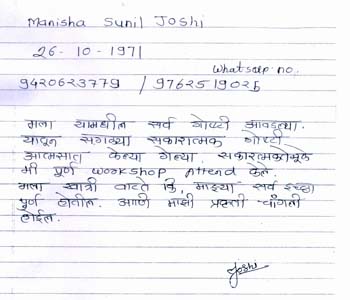 Manisha Sunil Joshi
26-10-1971
Whatsaap no.
9420623779 / 9762519025
मला यामधील सर्व गोष्टी आवडल्या.
यातून सगळ्या सकारात्मक गोष्टी
आत्मसात केल्या गेल्या. सकारात्मकतेमुळे
मी पूर्ण workshop Attend केले.
मला खात्री वाटते कि, माझ्या सर्व इच्छा
पूर्ण होतील. आणी माझी प्रगती चांगली
होईल.
Joshi